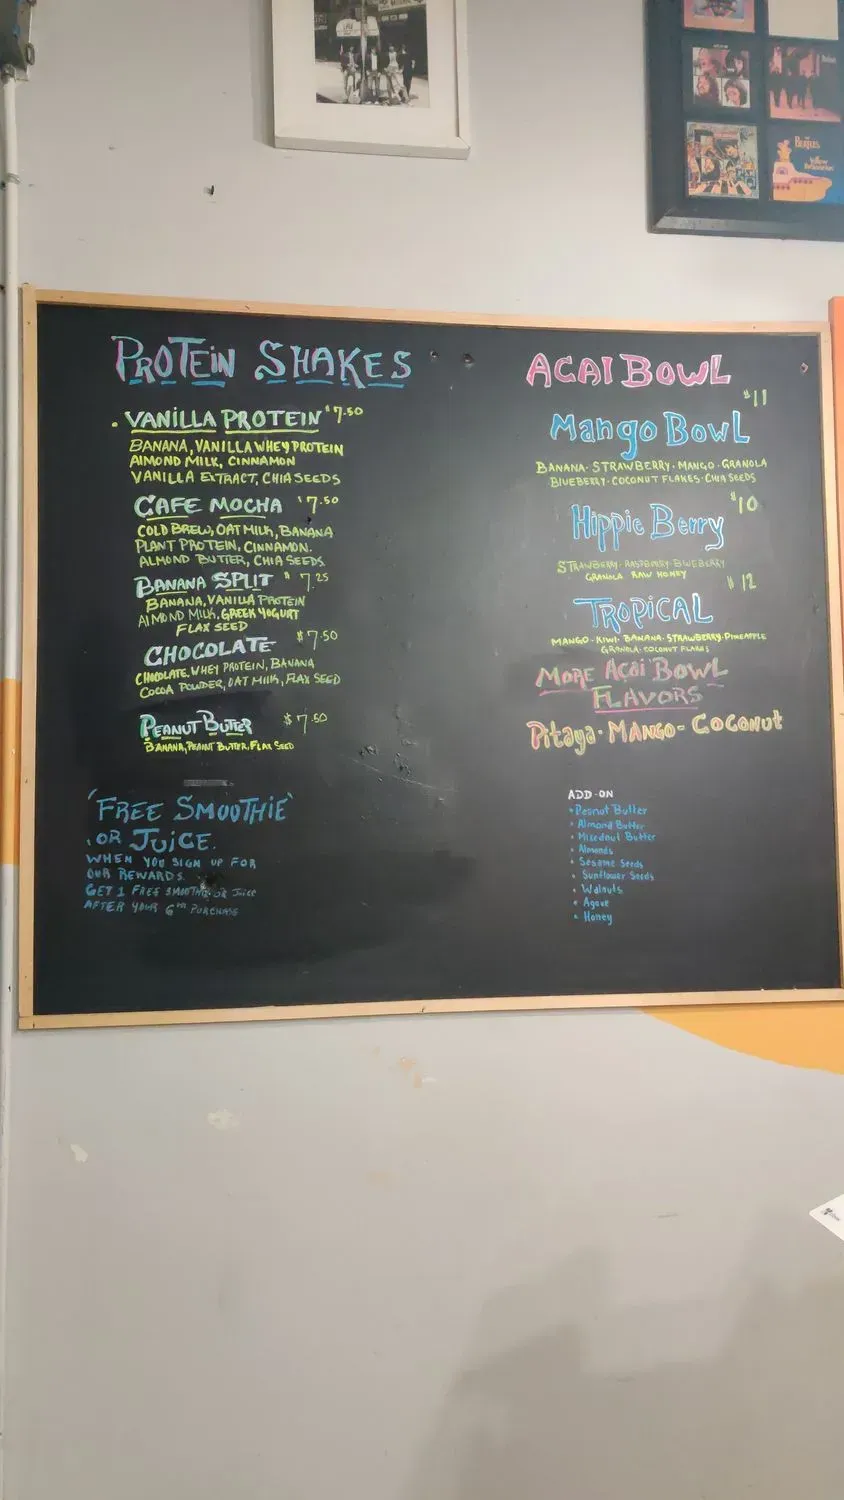 PROTEIN SHAKES
VANILLA PROTEIN $7.50
BANANA, VANILLA WHEY PROTEIN
AlMOND MILK, CINNAMON
VANILLA EXTRACT, CHIA SEEDS
CAFE MOCHA $7.50
COLD BREW, OAT MILK, BANANA
PLANT PROTEIN, CINNAMON.
ALMOND BUTTER, CHIA SEEDS.
BANANA SPLIT $7.25
BANANA, VANILLA PROTEIN
AlMOND MILK, GREEK YOGURT
FLAX SEED
CHOCOLATE $7.50
CHOCOLATE, WHEY PROTEIN, BANANA
COCOA POWDER, OAT MILK, FLAX SEED
PEANUT BUTTER $7.50
BANANA, PEANUT BUTTER, FLAX SEED
"FREE SMOOTHIE"
OR JUICE.
WHEN YOU SIGN UP FOR
OUR REWARDS.
GET 1 FREE SMOOTHIE OR JUICE
AFTER YOUR 6TH PURCHASE
ACAI BOWL
$11
Mango BowL
BANANA · STRAWBERRY · MANGO · GRANOLA
BLUEBERRY · COCONUT FLAKES · CHIA SEEDS
$10
Hippie Berry
STRAWBERRY · RASPBERRY · BLUEBERRY
GRANOLA RAW HONEY
$12
TROPICAL
MANGO · KIWI · BANANA · STRAWBERRY · PINEAPPLE
GRANOLA · COCONUT FLAKES
MORE Açai BOWL
FLAVORS
Pitaya · MANGO - COCONUT
ADD-ON
• Peanut Butter
• Almond Butter
• Mixednut Butter
• Almonds
• Sesame Seeds
• Sunflower Seeds
• Walnuts
• Agave
• Honey
BEATLES
Yellow Submarine